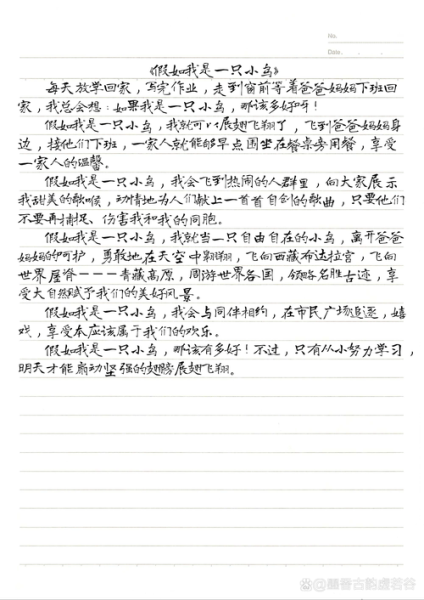 No.
Date.
《假如我是一只小鸟》
每天放学回家，写完作业，走到窗前等着爸爸妈妈下班回
家，我总会想：如果我是一只小鸟，那该多好呀！
假如我是一只小鸟，我就可以展翅飞翔了，飞到爸爸妈妈身
边，接他们下班，一家人就能够早点围坐在餐桌旁用餐，享受
一家人的温馨。
假如我是一只小鸟，我会飞到热闹的人群里，向大家展示
我甜美的歌喉，动情地为人们献上一首首自创的歌曲，只要他们
不要再捕捉、伤害我和我的同胞。
假如我是一只小鸟，我就当一只自由自在的小鸟，离开爸爸
妈妈的呵护，勇敢地在天空中翱翔，飞向西藏布达拉宫，飞向
世界屋脊————青藏高原，周游世界各国，领略名胜古迹，享
受大自然赋予我们的美好风景。
假如我是一只小鸟，我会与同伴相约，在市民广场追逐，嬉
戏，享受本应该属于我们的欢乐。
假如我是一只小鸟，那该有多好！不过，只有从小努力学习，
明天才能扇动坚强的翅膀展翅飞翔。